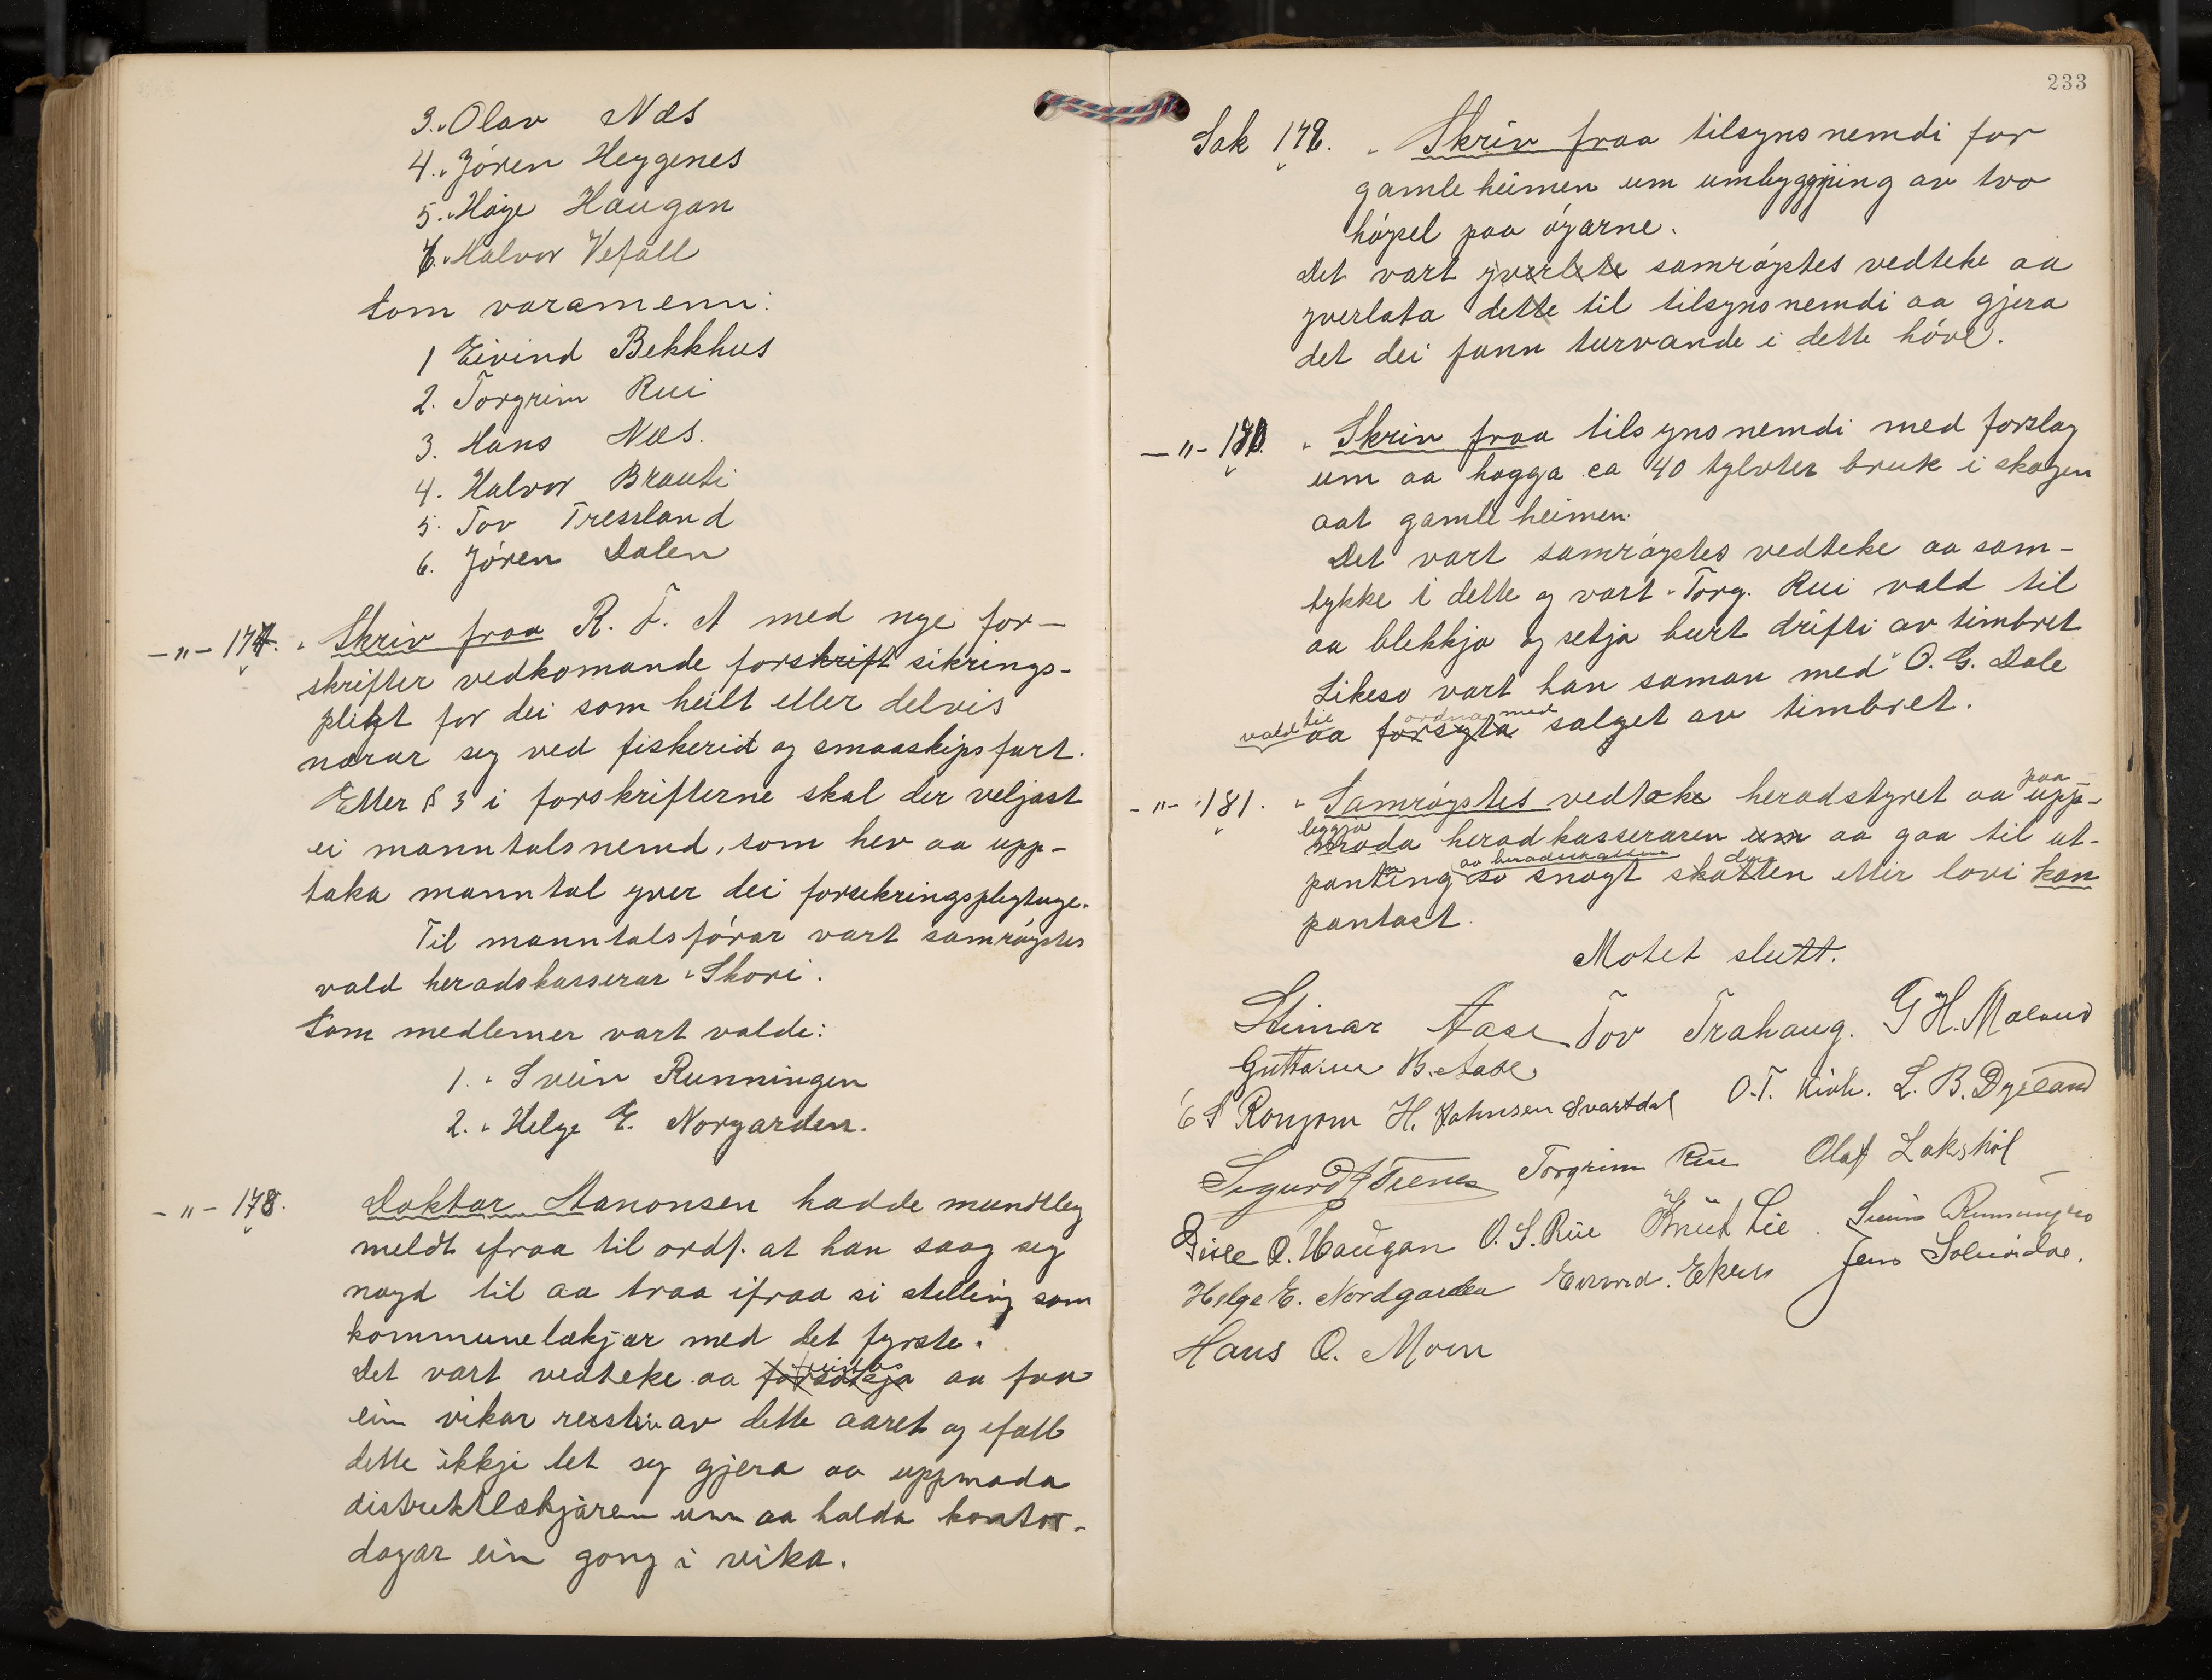 3. Olav Næs
4. Jören Heggenes
5. Høye Haugan
6. Halvor Vefall
Som varamenn:
1 Eivind Bekkhus
2. Torgrim Rui
3. Hans Næs.
4. Halvor Brauti
5. Tov Tressland
6. Jören Dalen
-"- 177. Skriv fraa R. F. A med nye for-
skrifter vedkomande forskrift sikrings-
plikt for dei som heilt eller delvis
nærar seg ved fiskerid og smaaskipsfart.
Etter § 3 i forskrifterne skal der veljast
ei manntalsnemd, som hev aa upp-
taka manntal yver dei forsekringsplegtuge.
Til manntalsförar vart samröystes
vald heradskasserar Skori.
Som medlemer vart valde:
1. Svein Runningen
2. Helge E. Norgarden.
-"- 178. Doktor Aanonsen hadde mundtleg
meldt ifraa til ordf. at han saag seg
nøyd til aa traa ifraa si stelling som
kommunelækjar med det fyrste.
Det vart vedteke aa forsøkja aa faa
ein vikar resten av dette aaret og ifall
dette ikkje let seg gjera aa uppmoda
distriktlækjaren um aa halda kontor-
dagar ein gong i vika.
233
Sak 179. Skriv fraa tilsynsnemdi for
gamleheimen um umbyggjing av tvo
höysel paa öyarne.
Det vart yverlete samröystes vedteke aa
yverlata dette til tilsynsnemdi aa gjera
det dei fann turvande i dette höve.
-"- 180. Skriv fraa tilsynsnemdi med forslag
um aa hogga ca 40 tylvter bruk i skogen
aat gamleheimen.
Det vart samröystes vedteke aa sam-
tykke i dette og vart Torg. Rui vald til
aa blekkja og setja burt drifti av timbret
Likeso vart han saman med O. G. Dale
vald til ordna med
aa forsyta salget av timbret.
-"- 181. Samröystes vedteke heradstyret aa paa upp-
leggja
moda heradkasseraren um aa gaa til ut-
av heradskatten den
panting so snøgt skatten etter lovi kan
pantast.
Motet slutt.
Steinar Aase Tov Trahaug. G H. Moland
Guttorm B. Aase
E S Ronjom H. Johnsen Svartdal O. T. L. B. Dyrland
Sigurd Torgrim Rui Olaf Lakshöl
Gisle O. Haugan O. S. Rui Knut Lie Svein Runningen
Helge E. Nordgarden Eivind Ekhus Jens
Hans O. Moen